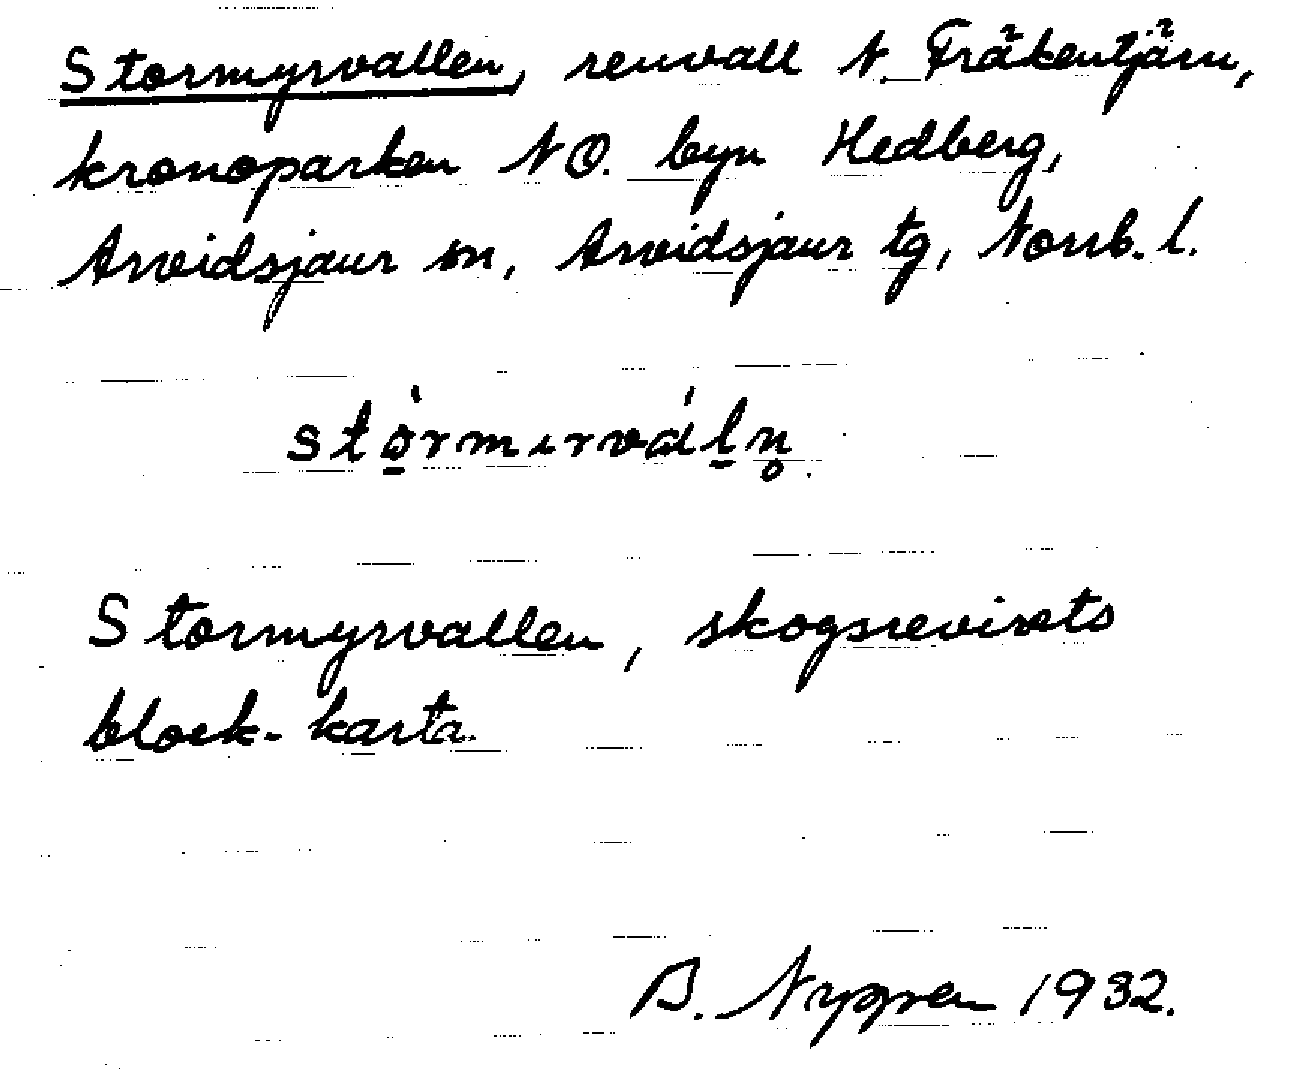 Stormyrvallen, renvall N. Fräkentjärn,
kronoparken NO. byn Hedberg,
Arvidsjaur sn, Arvidsjaur tg, Norrb. l.
stò̱rmırvál̠n̥.
Stormyrvallen, skogsrevirets
block-karta.
B. Nygren 1932.